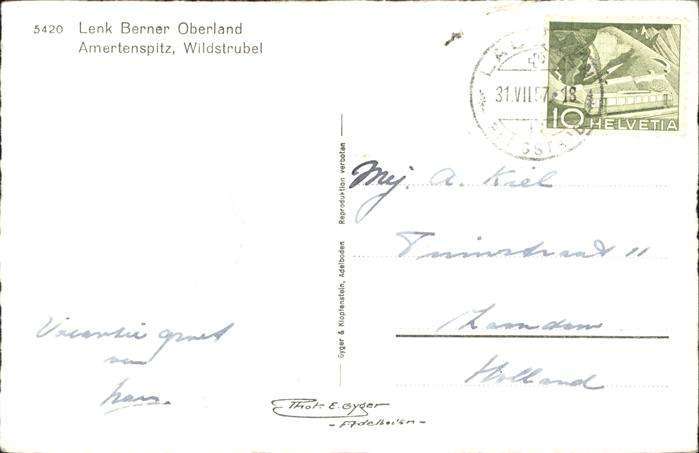 5420 Lenk Berner Oberland
Amertenspitz, Wildstrubel
31.VII.57-18
10 HELVETIA
Mej. A. Kiel
Tuinstraat 11
Zaandam
Holland
Vacantie groet
van
Gyger & Klopfenstein, Adelboden Reproduktion verboten
Phot. E. Gyger
- Adelboden -